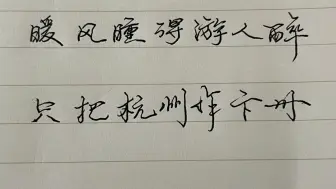 暖风得游人醉
只把杭州作卞州